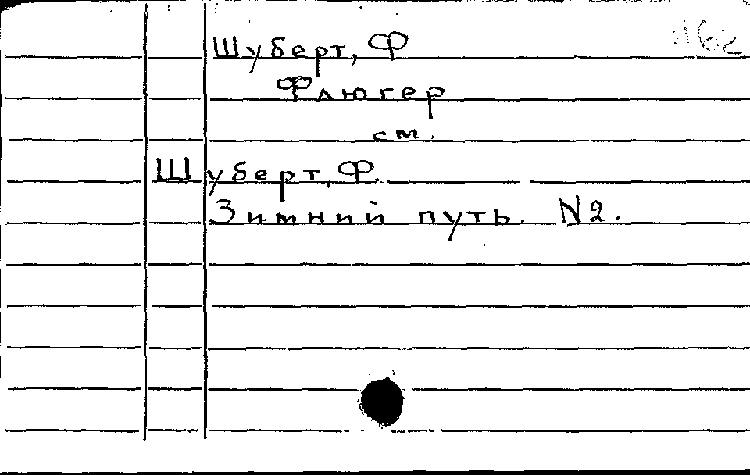 Шуберт, Ф
Флюгер
см.
Шуберт, Ф.
Зимний путь. N2.